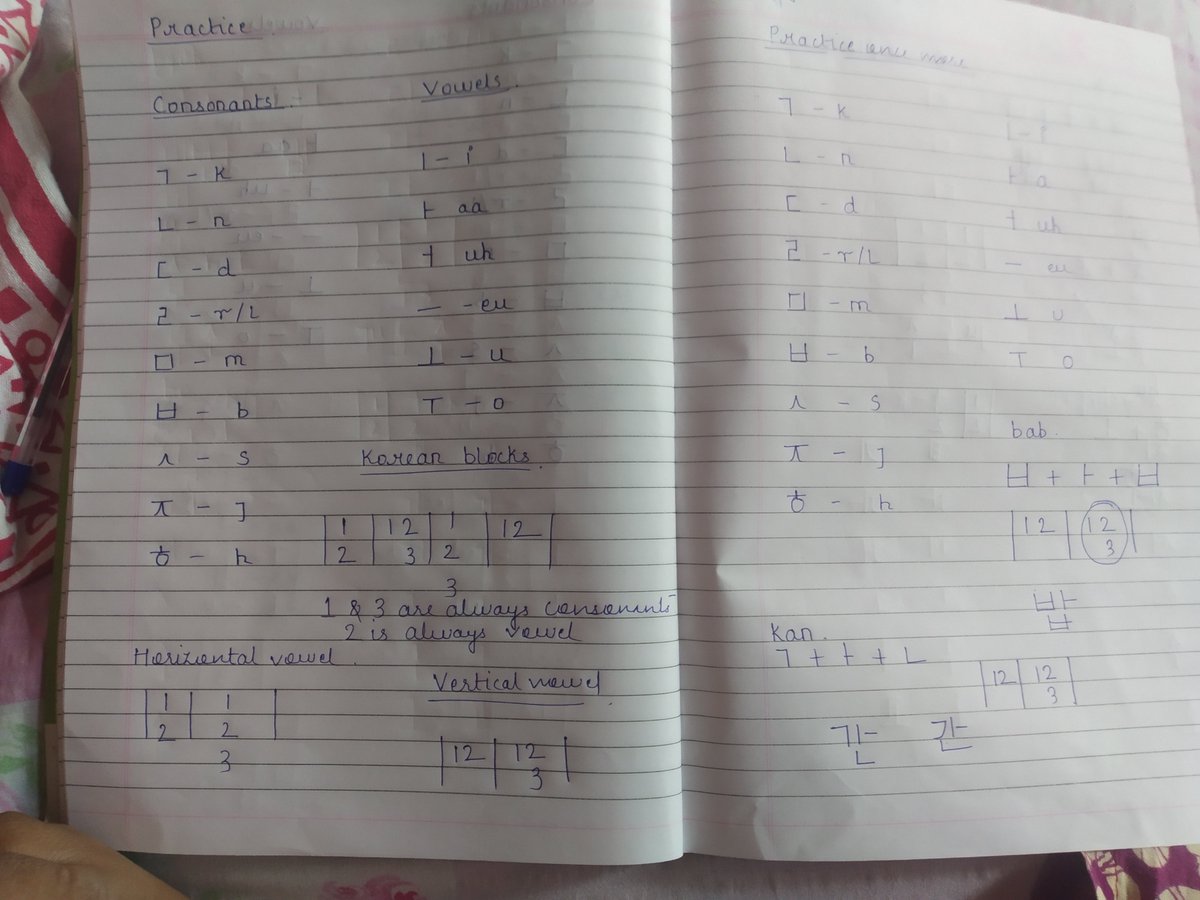 Practice
Consonants
ㄱ - k
ㄴ - n
ㄷ - d
ㄹ - r/L
ㅁ - m
ㅂ - b
ㅅ - s
ㅈ - J
ㅎ - h
Vowels
ㅣ - i
ㅏ aa
ㅓ uh
ㅡ - eu
ㅗ - u
ㅜ - o
Korean blocks
1 12 1 12
2 3 2
3
1 & 3 are always consonants
2 is always vowel
Horizontal vowel
1 1
2 2
3
Vertical vowel
12 12
3
Practice once more
ㄱ - k
ㄴ - n
ㄷ - d
ㄹ - r/L
ㅁ - m
ㅂ - b
ㅅ - s
ㅈ - J
ㅎ - h
ㅣ - i
ㅏ a
ㅓ uh
ㅡ eu
ㅗ u
ㅜ o
bab
ㅂ + ㅏ + ㅂ
12 12
3
밥
Kan
ㄱ + ㅏ + ㄴ
12 12
3
간 간